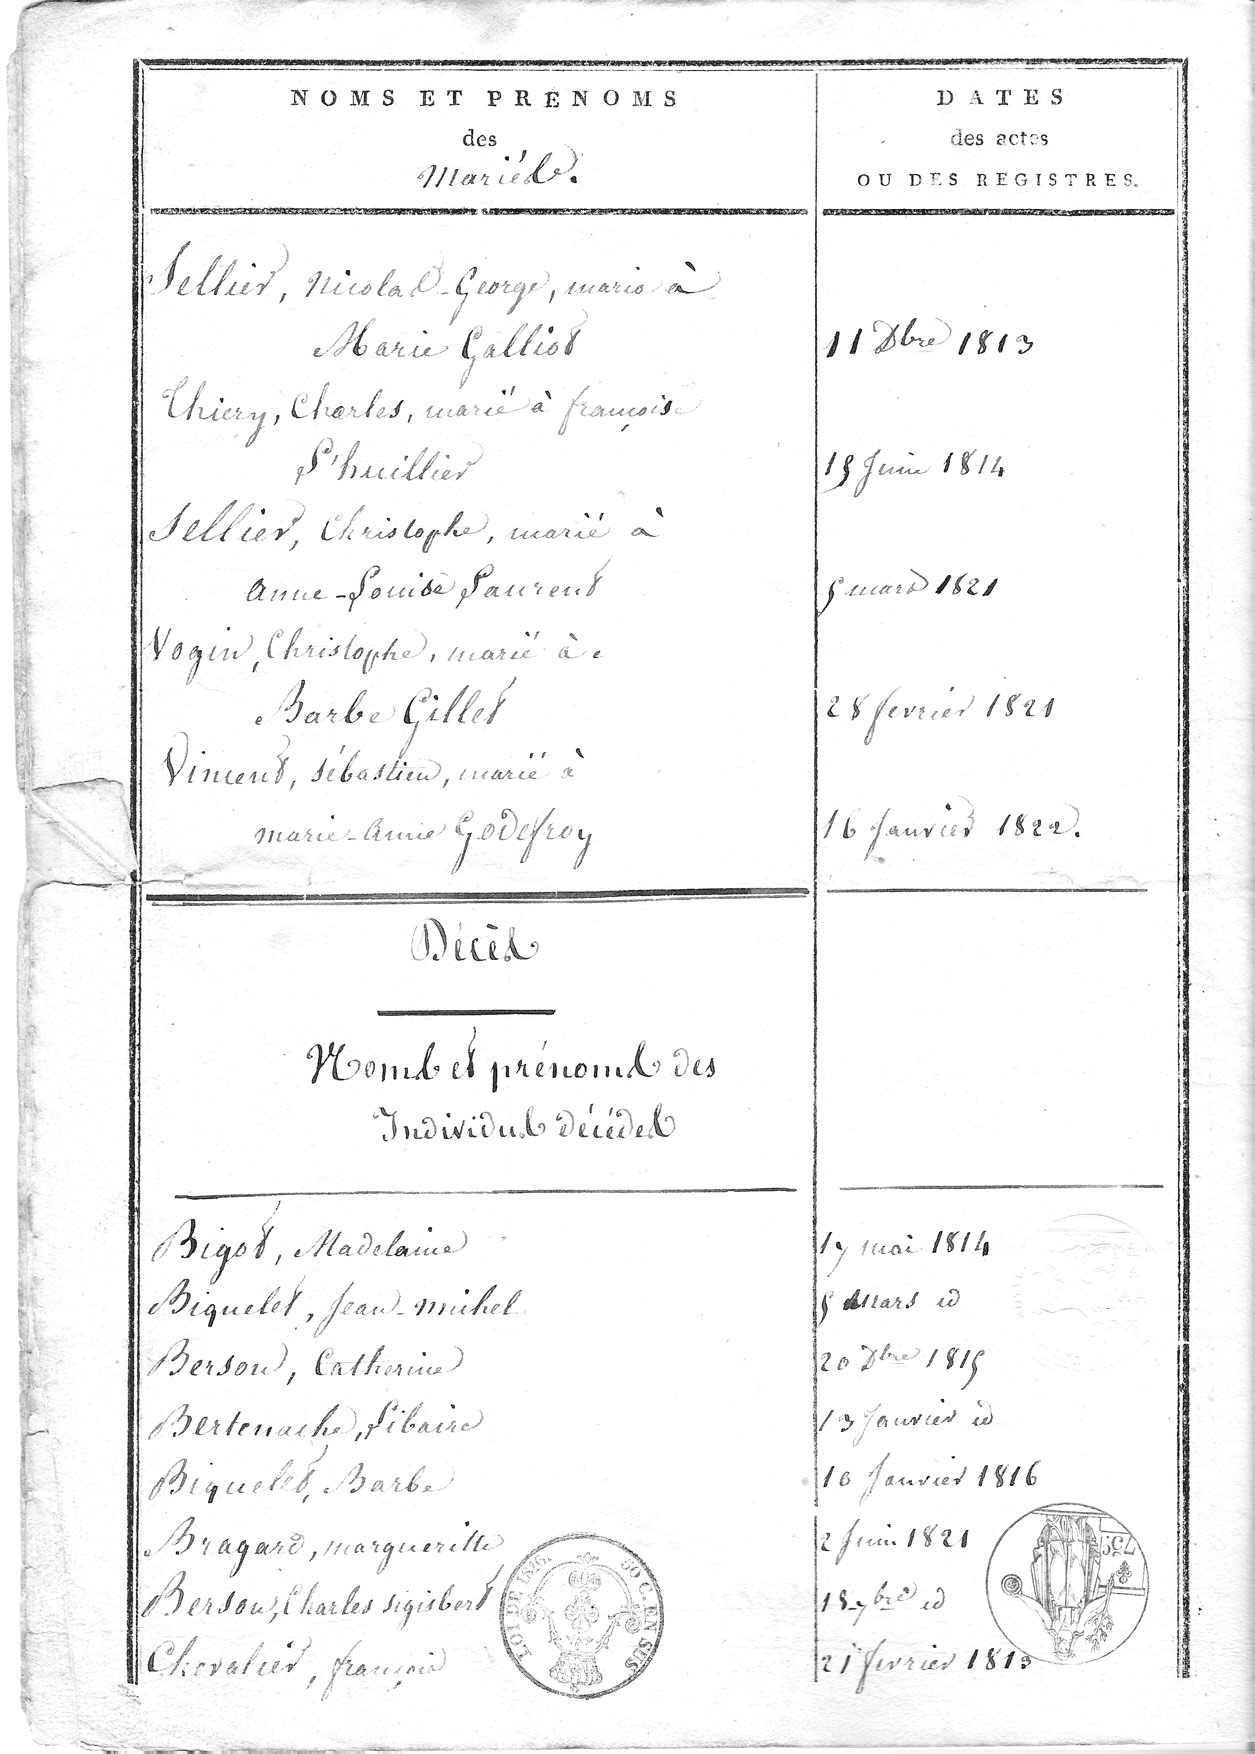 NOMS ET PRENOMS
des
Mariés.
DATES
des actes
OU DES REGISTRES.
Sellier, Nicolas-George, marié à
Marie Galliot
11 Dbre 1813
Thiery, Charles, marié à françoise
L'huillier
15 Juin 1814
Sellier, Christophe, marié à
Anne-Louise Laurent
5 mars 1821
Vogin, Christophe, marié à
Barbe Gillet
28 fevrier 1821
Vincent, Sébastien, marié à
marie-Anne Godefroy
16 Janvier 1822.
Décès
Noms et prénoms des
Individus décédés
Bigot, Madelaine
17 mai 1814
Biquelet, Jean-michel
5 Mars id
Berson, Catherine
20 Dbre 1815
Bertenache, Libaire
13 Janvier id
Biquelet, Barbe
10 Janvier 1816
Bragard, margueritte
2 Juin 1821
Berson, Charles sigisbert
18 7bre id
Chevalier, françois
21 fevrier 1813
LOI DE 1816.
50 C. EN SUS
75C